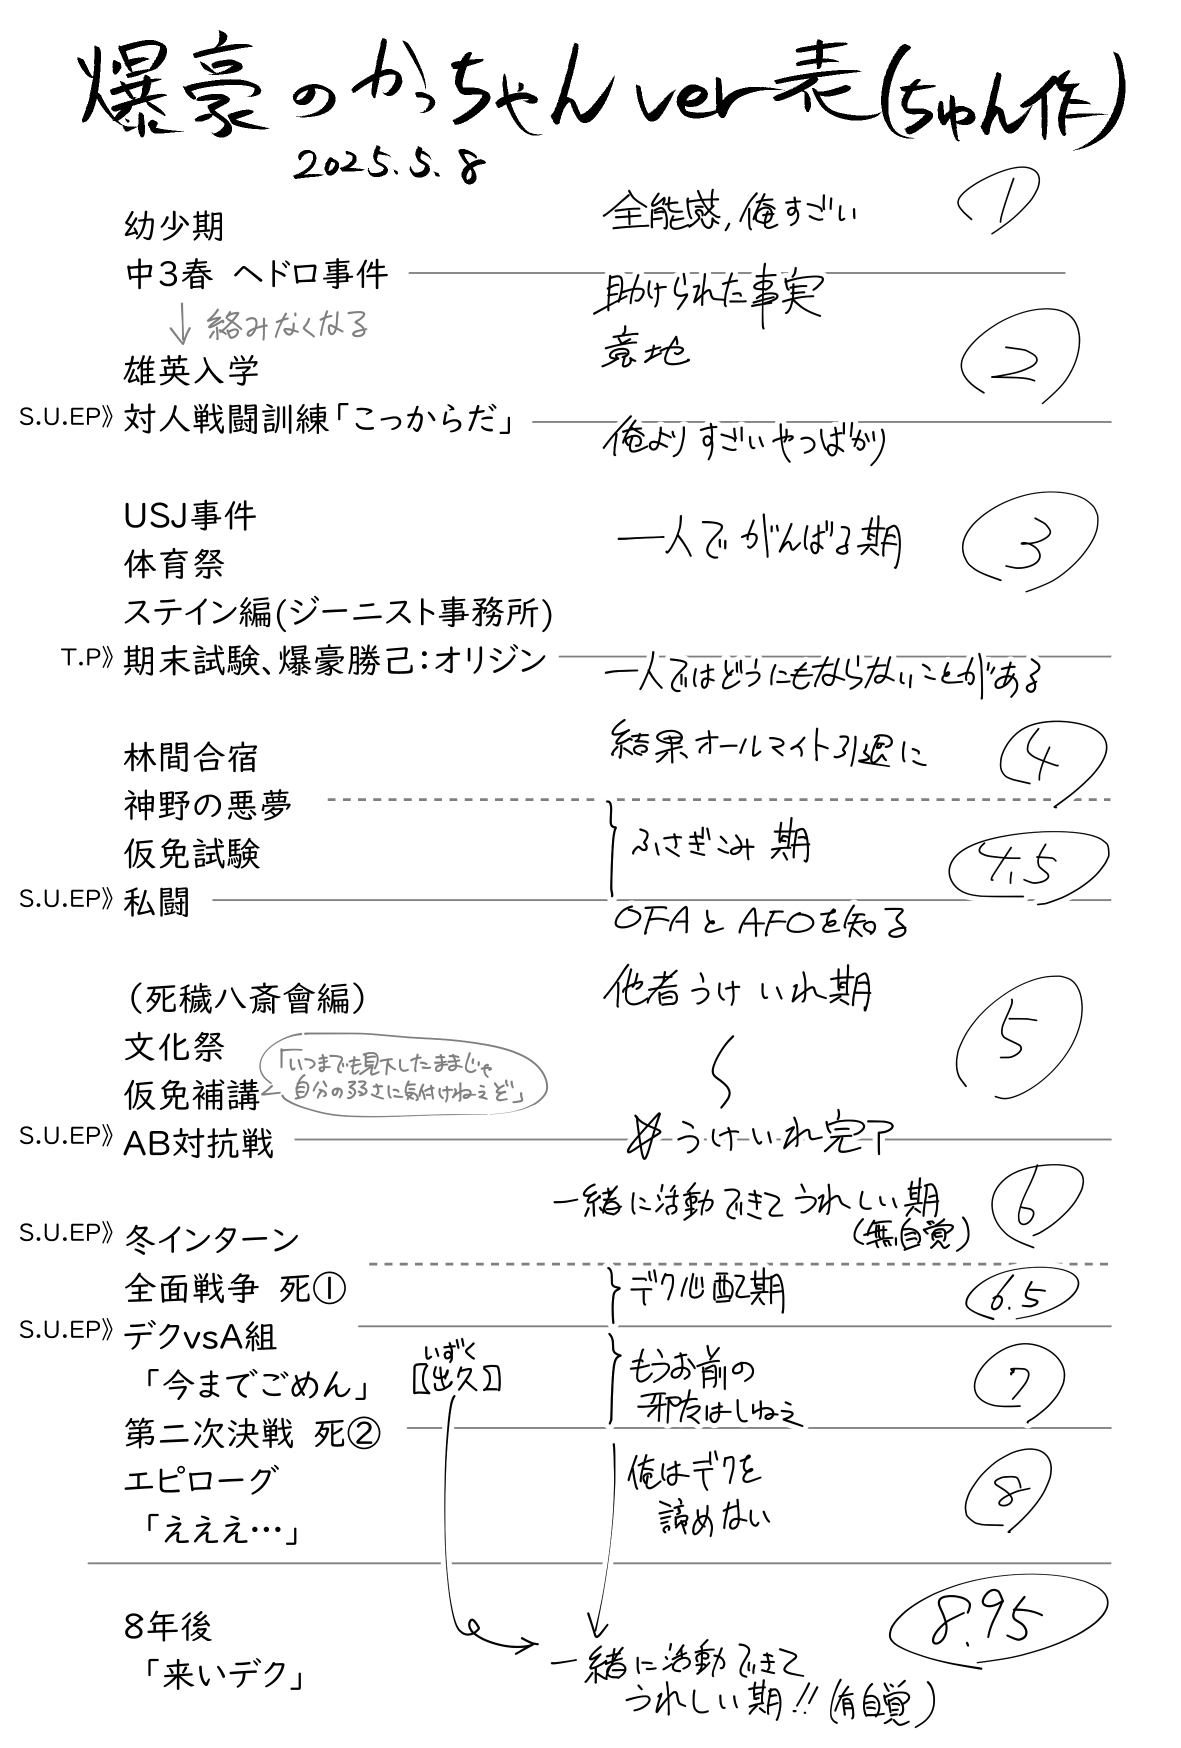 爆豪のかっちゃんver表(ちゅん作)
2025.5.8
幼少期
全能感,俺すごい
1
中3春 ヘドロ事件
助けられた事実
↓絡みなくなる
意地
2
雄英入学
S.U.EP》対人戦闘訓練「こっからだ」
俺よりすごいやつばかり
USJ事件
一人でがんばる期
3
体育祭
ステイン編(ジーニスト事務所)
T.P》期末試験、爆豪勝己:オリジン
一人ではどうにもならないことがある
林間合宿
結果オールマイト引退に
4
神野の悪夢
仮免試験
ふさぎこみ期
4.5
S.U.EP》私闘
OFAとAFOを知る
(死穢八斎會編)
他者うけいれ期
5
文化祭
仮免補講
「いつまでも見下したままじゃ
自分の弱さに気付けねえぞ」
S.U.EP》AB対抗戦
☆うけいれ完了
一緒に活動できてうれしい期
(無自覚)
6
S.U.EP》冬インターン
全面戦争 死①
デク心配期
6.5
S.U.EP》デクvsA組
「今までごめん」
いずく
〖出久〗
もうお前の
邪魔はしねえ
7
第二次決戦 死②
エピローグ
「えええ…」
俺はデクを
諦めない
8
8年後
「来いデク」
8.95
一緒に活動できて
うれしい期!!(有自覚)